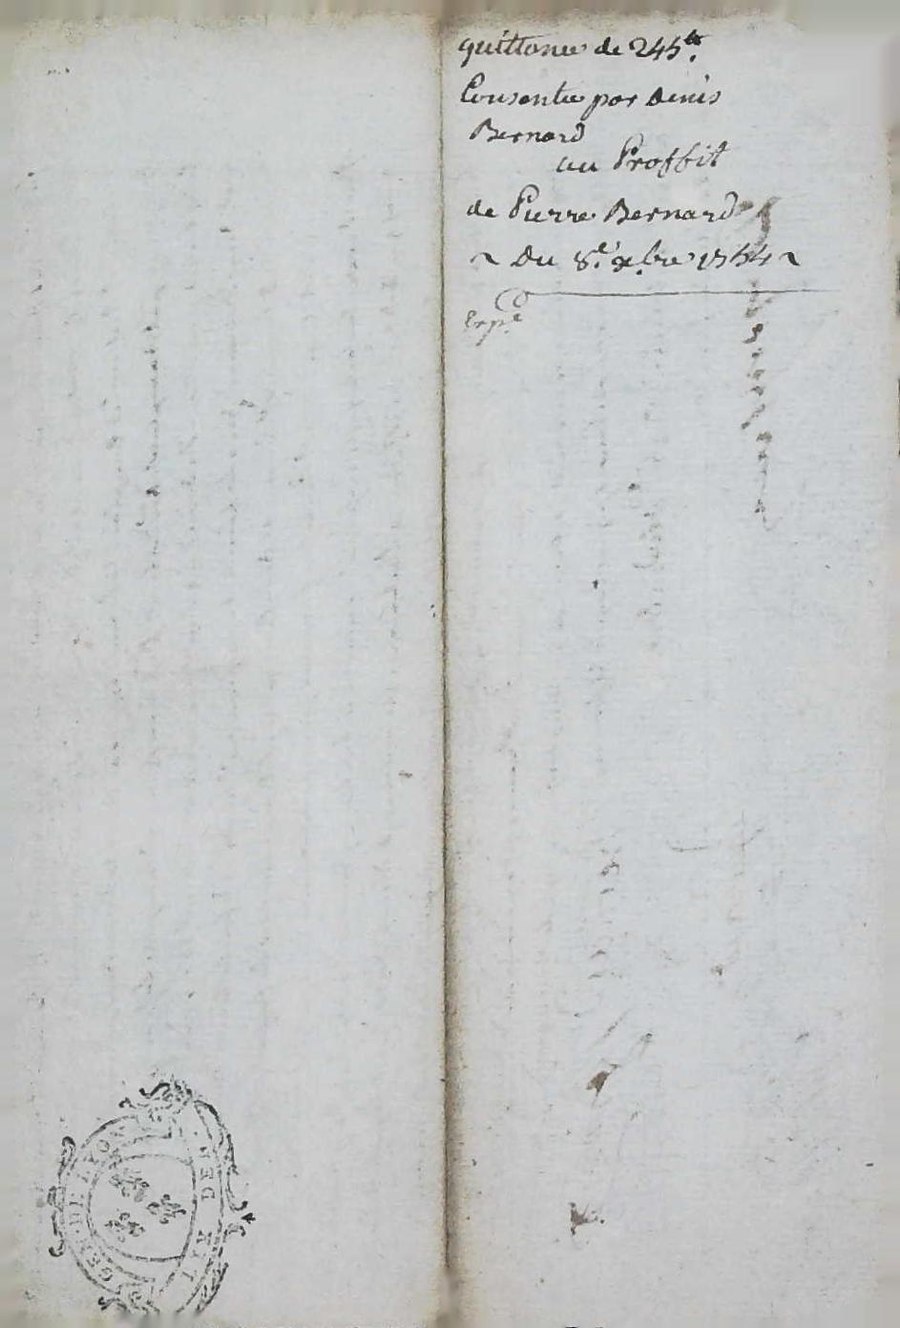 quittance de 245tt.
Consentie par Denis
Bernard
au Proffit
de Pierre Bernard
~ Du 8.e xbre 1764 ~
Exp.é
GEN. DE LYON
DEN